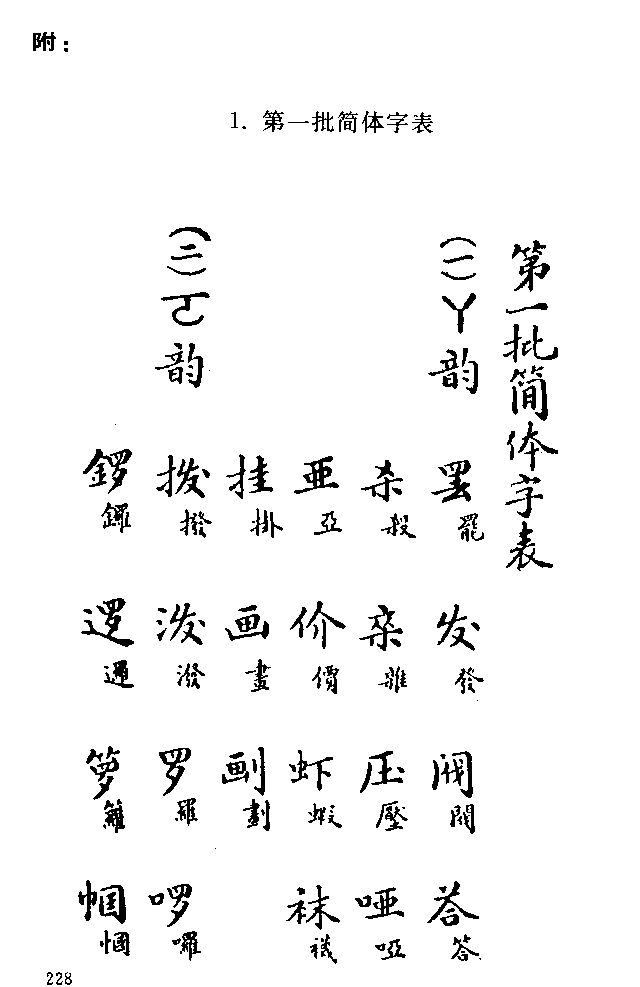 附：
1. 第一批简体字表
第一批简体字表
(一)ㄚ韵
罢 罷 发 發 阀 閥 荅 答
杀 殺 杂 雜 压 壓 唖 啞
亜 亞 价 價 虾 蝦 袜 襪
挂 掛 画 畫 㓰 劃
(二)ㄛ韵
拨 撥 泼 潑 罗 羅 啰 囉
锣 鑼 逻 邏 箩 籮 帼 幗
228